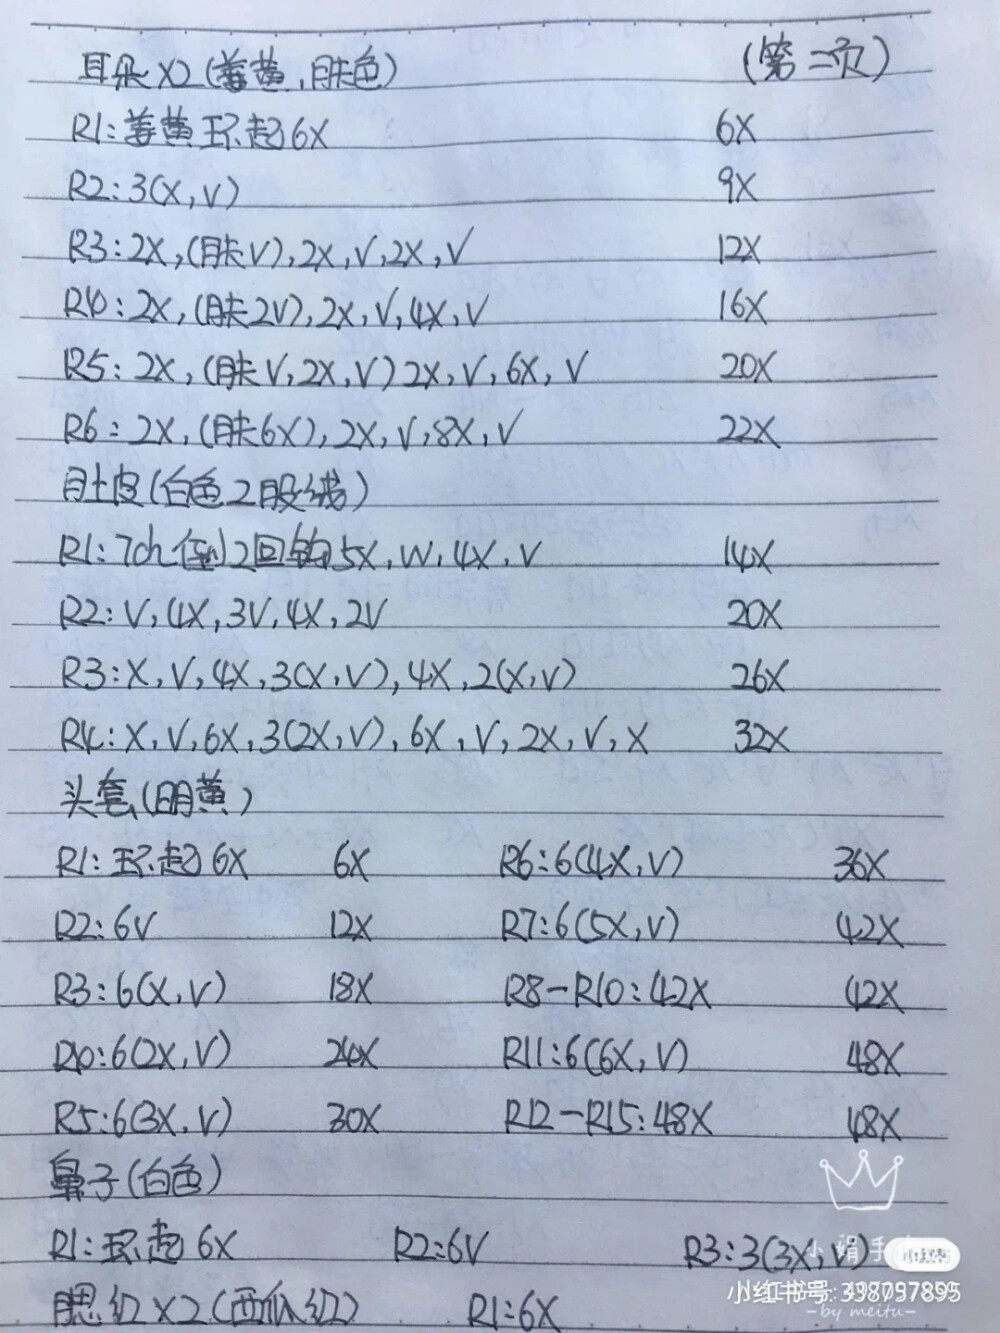 耳朵X2(姜黄,肤色) (第二页)
R1:姜黄环起6X 6X
R2:3(X,V) 9X
R3:2X,(肤V),2X,V,2X,V 12X
R4:2X,(肤2V),2X,V,4X,V 16X
R5:2X,(肤V,2X,V)2X,V,6X,V 20X
R6:2X,(肤6X),2X,V,8X,V 22X
肚皮(白色2股线)
R1:7ch倒2回钩5X,W,4X,V 14X
R2:V,4X,3V,4X,2V 20X
R3:X,V,4X,3(X,V),4X,2(X,V) 26X
R4:X,V,6X,3(2X,V),6X,V,2X,V,X 32X
头套(明黄)
R1:环起6X 6X R6:6(4X,V) 36X
R2:6V 12X R7:6(5X,V) 42X
R3:6(X,V) 18X R8-R10:42X 42X
R4:6(2X,V) 24X R11:6(6X,V) 48X
R5:6(3X,V) 30X R12-R15:48X 48X
鼻子(白色)
R1:环起6X R2:6V R3:3(3X,V)
小娟手 小红书
腮红X2(西瓜红) R1:6X
小红书号:
-by meitu-